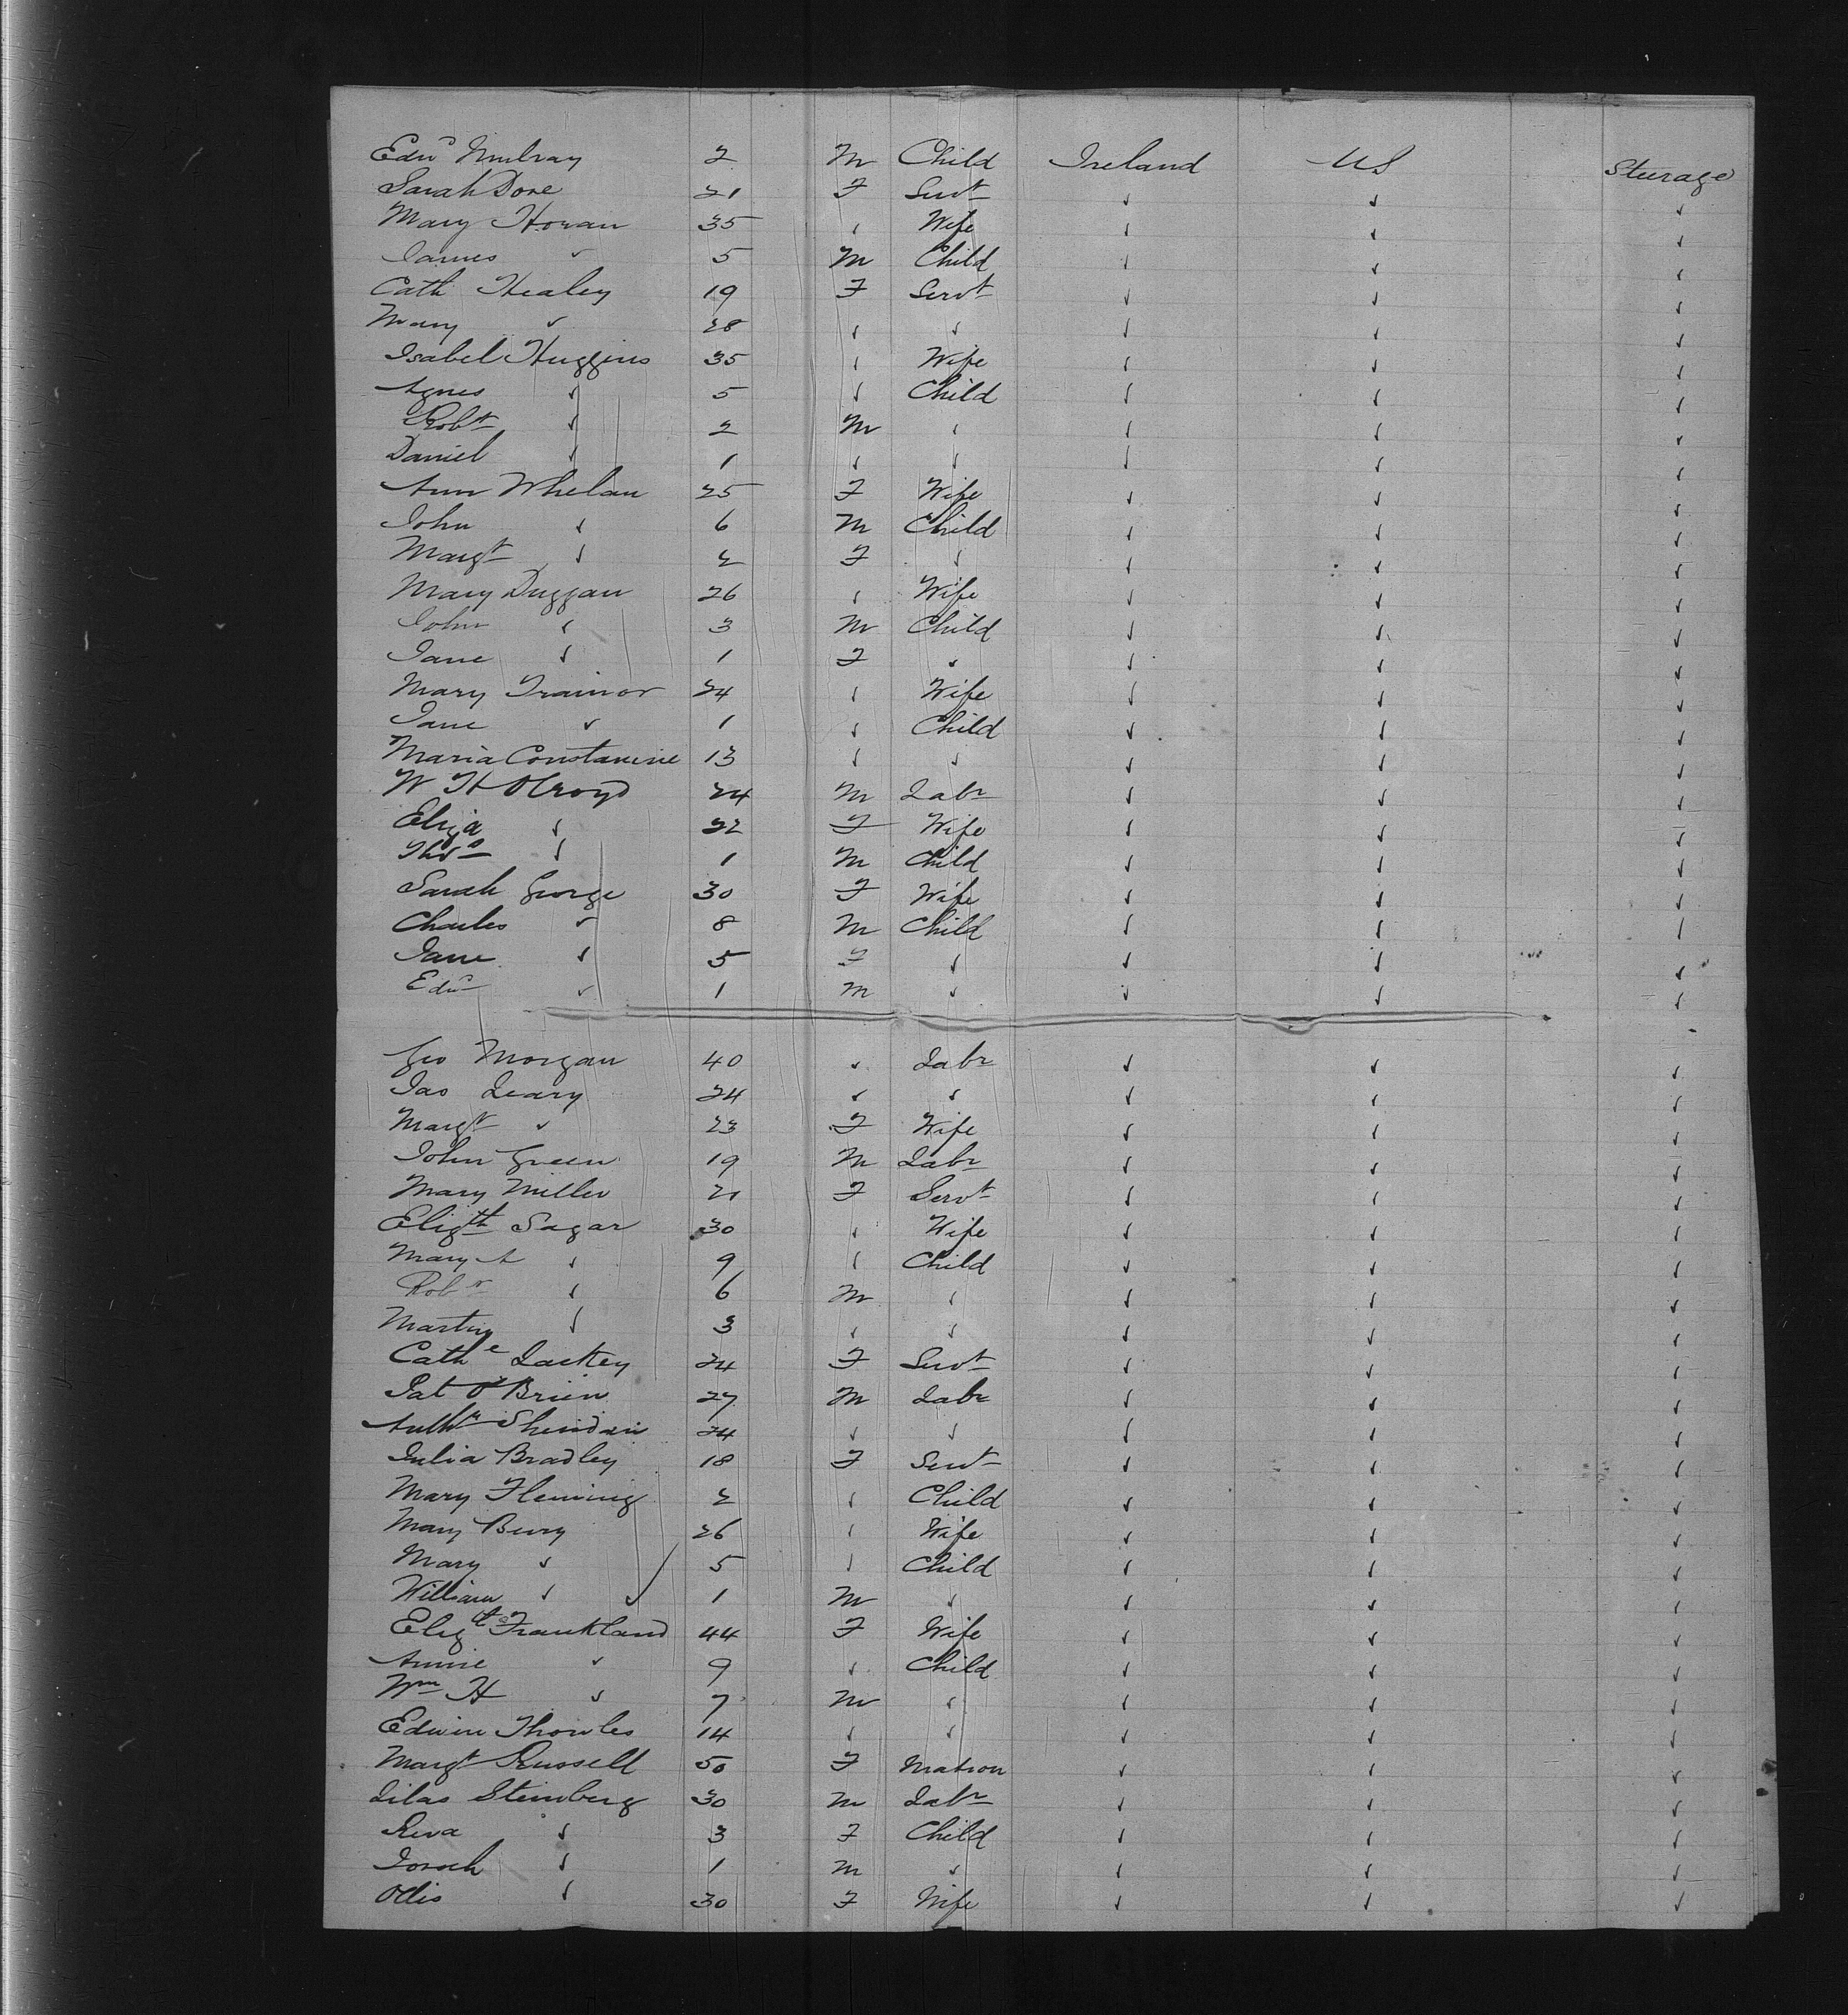 Edwd Mulray 2 M Child Ireland US Steerage
Sarah Dore 21 F Servt ✓ ✓ ✓
Mary Horan 35 ✓ Wife ✓ ✓ ✓
James ✓ 5 M Child ✓ ✓ ✓
Cath Healey 19 F Servt ✓ ✓ ✓
Mary ✓ 28 ✓ ✓ ✓ ✓ ✓
Isabel Huggins 35 ✓ Wife ✓ ✓ ✓
Agnes ✓ 5 ✓ Child ✓ ✓ ✓
Robt ✓ 2 M ✓ ✓ ✓ ✓
Daniel ✓ 1 ✓ ✓ ✓ ✓ ✓
Ann Whelan 25 F Wife ✓ ✓ ✓
John ✓ 6 M Child ✓ ✓ ✓
Margt ✓ 2 F ✓ ✓ ✓ ✓
Mary Duggan 26 ✓ Wife ✓ ✓ ✓
John ✓ 3 M Child ✓ ✓ ✓
Jane ✓ 1 F ✓ ✓ ✓ ✓
Mary Trainor 24 ✓ Wife ✓ ✓ ✓
Jane ✓ 1 ✓ Child ✓ ✓ ✓
Maria Constantine 13 ✓ ✓ ✓ ✓ ✓
W H Olroyd 24 M Labr ✓ ✓ ✓
Eliza ✓ 22 F Wife ✓ ✓ ✓
Thos ✓ 1 M Child ✓ ✓ ✓
Sarah George 30 F Wife ✓ ✓ ✓
Charles ✓ 8 M Child ✓ ✓ ✓
Jane ✓ 5 F ✓ ✓ ✓ ✓
Edwd ✓ 1 M ✓ ✓ ✓ ✓
Geo Morgan 40 ✓ Labr ✓ ✓ ✓
Jas Leary 24 ✓ ✓ ✓ ✓ ✓
Margt ✓ 23 F Wife ✓ ✓ ✓
John Green 19 M Labr ✓ ✓ ✓
Mary Miller 21 F Servt ✓ ✓ ✓
Elizth Sagar 30 ✓ Wife ✓ ✓ ✓
Mary A ✓ 9 ✓ Child ✓ ✓ ✓
Robt ✓ 6 M ✓ ✓ ✓ ✓
Martin ✓ 3 ✓ ✓ ✓ ✓ ✓
Cathe Lackey 24 F Servt ✓ ✓ ✓
Pat O'Brien 27 M Labr ✓ ✓ ✓
Anthy Sheridan 24 ✓ ✓ ✓ ✓ ✓
Julia Bradley 18 F Servt ✓ ✓ ✓
Mary Fleming 2 ✓ Child ✓ ✓ ✓
Mary Berry 26 ✓ Wife ✓ ✓ ✓
Mary ✓ 5 ✓ Child ✓ ✓ ✓
William ✓ ✓ 1 M ✓ ✓ ✓ ✓
Elizth Frankland 44 F Wife ✓ ✓ ✓
Annie ✓ 9 ✓ Child ✓ ✓ ✓
Wm H ✓ 7 M ✓ ✓ ✓ ✓
Edwin Thowles 14 ✓ ✓ ✓ ✓ ✓
Margt Russell 50 F Matron ✓ ✓ ✓
Silas Steinberg 30 M Labr ✓ ✓ ✓
Reva ✓ 3 F Child ✓ ✓ ✓
✓ 1 M ✓ ✓ ✓ ✓
Ottis ✓ 30 F Wife ✓ ✓ ✓